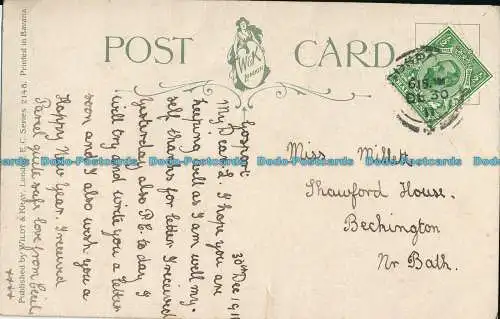 POST CARD
W&K
LONDON
Published by Wildt & Kray. London. E.C. Series 2148. Printed in Bavaria
Gosport
30th Dec 1911
My Dear L. I hope you are
keeping well as I am well my-
self thanks for letter I received
yesterday also P.C. to day I
will try and write you a letter
soon and I also wish you a
Happy New Year. I received
Parcel quite safe love from Cecil
++++
Miss Millett
Shawford House.
Beckington
Nr Bath.
DE 30
Dodo-Postcards Dodo-Postcards Dodo-Postcards Dodo-Postcards Dodo-Postcards Dodo-Postcards